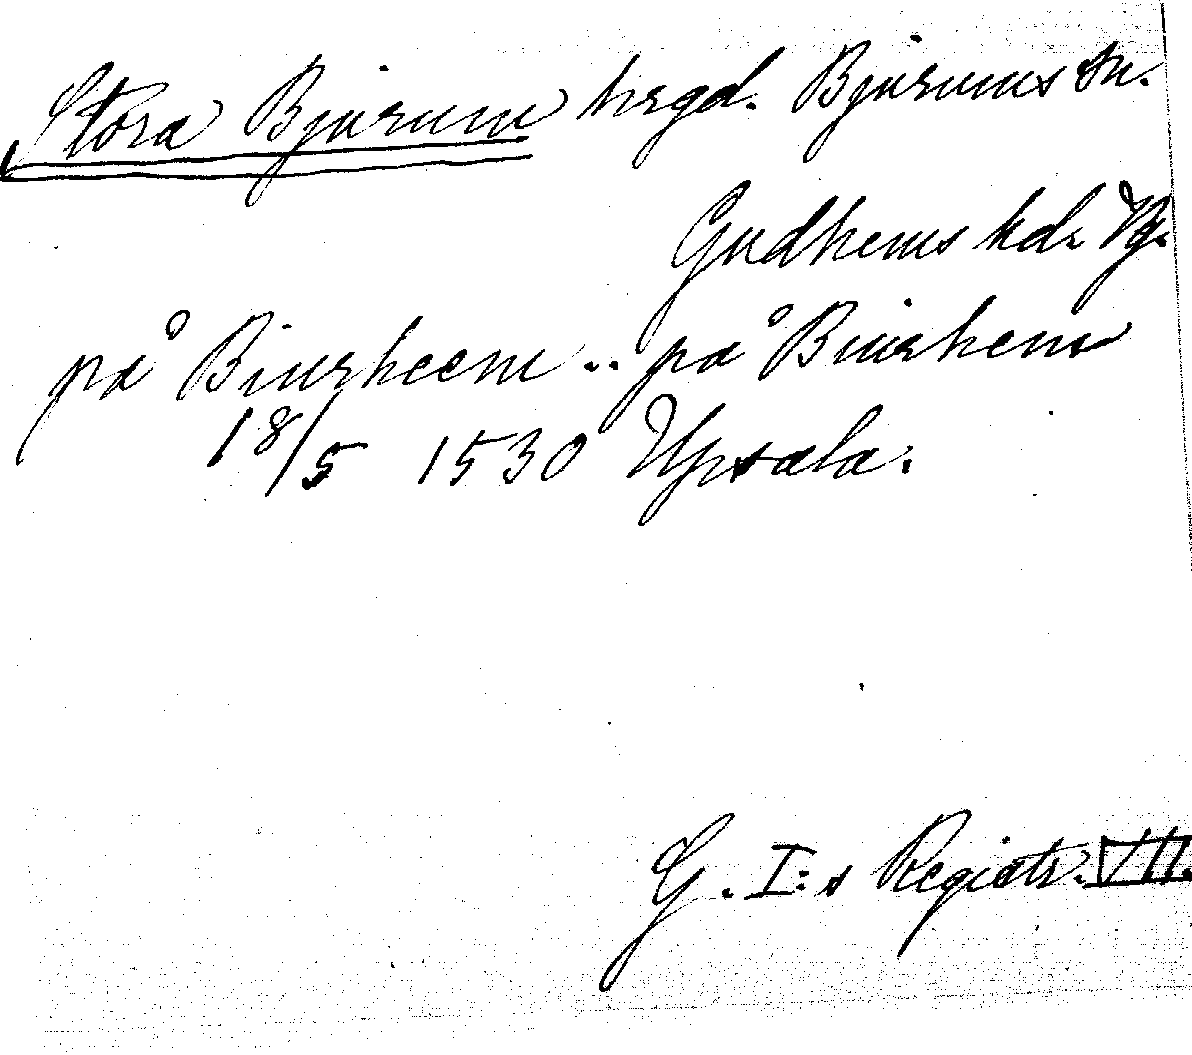 Stora Bjurum hrgd. Bjurums sn.
Gudhems hd. Vg.
på Biurheem .. på Biurhem
18/5 1530 Upsala.
G. I:s Registr. VII.